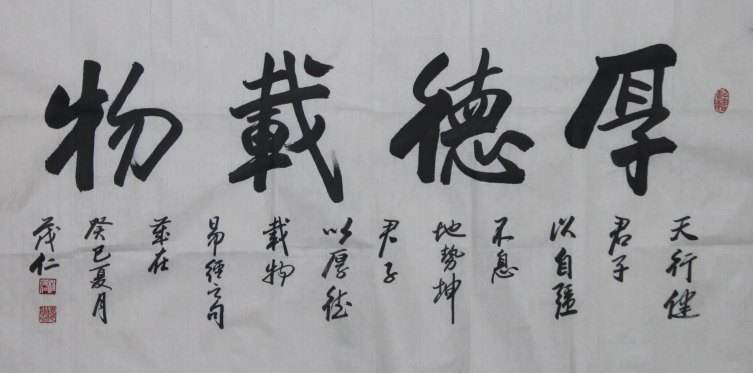 厚德載物
天行健
君子
以自强
不息
地势坤
君子
以厚德
載物
易經之句
癸巳夏月
茂仁